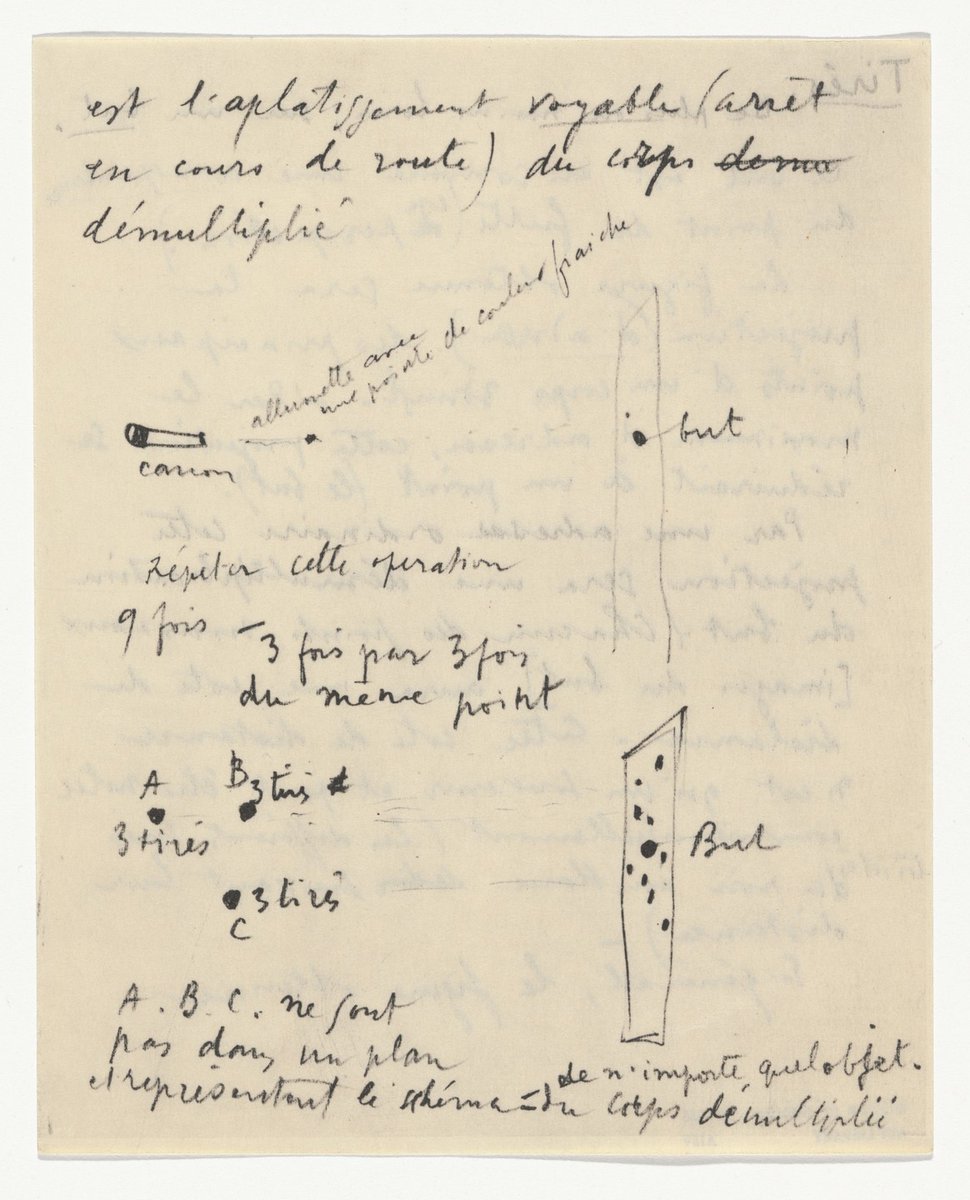 est l'aplatissement voyable (arrêt
en cours de route) du corps
démultiplié
allumette avec
une pointe de couleur fraiche
canon
but
répéter cette operation
9 fois – 3 fois par 3 fois
du même point
A
B
3 tirs
3 tirés
But
3 tirés
C
A. B. C. ne sont
pas dans un plan
et représentent le schéma
de n'importe quel objet.
du corps démultiplié